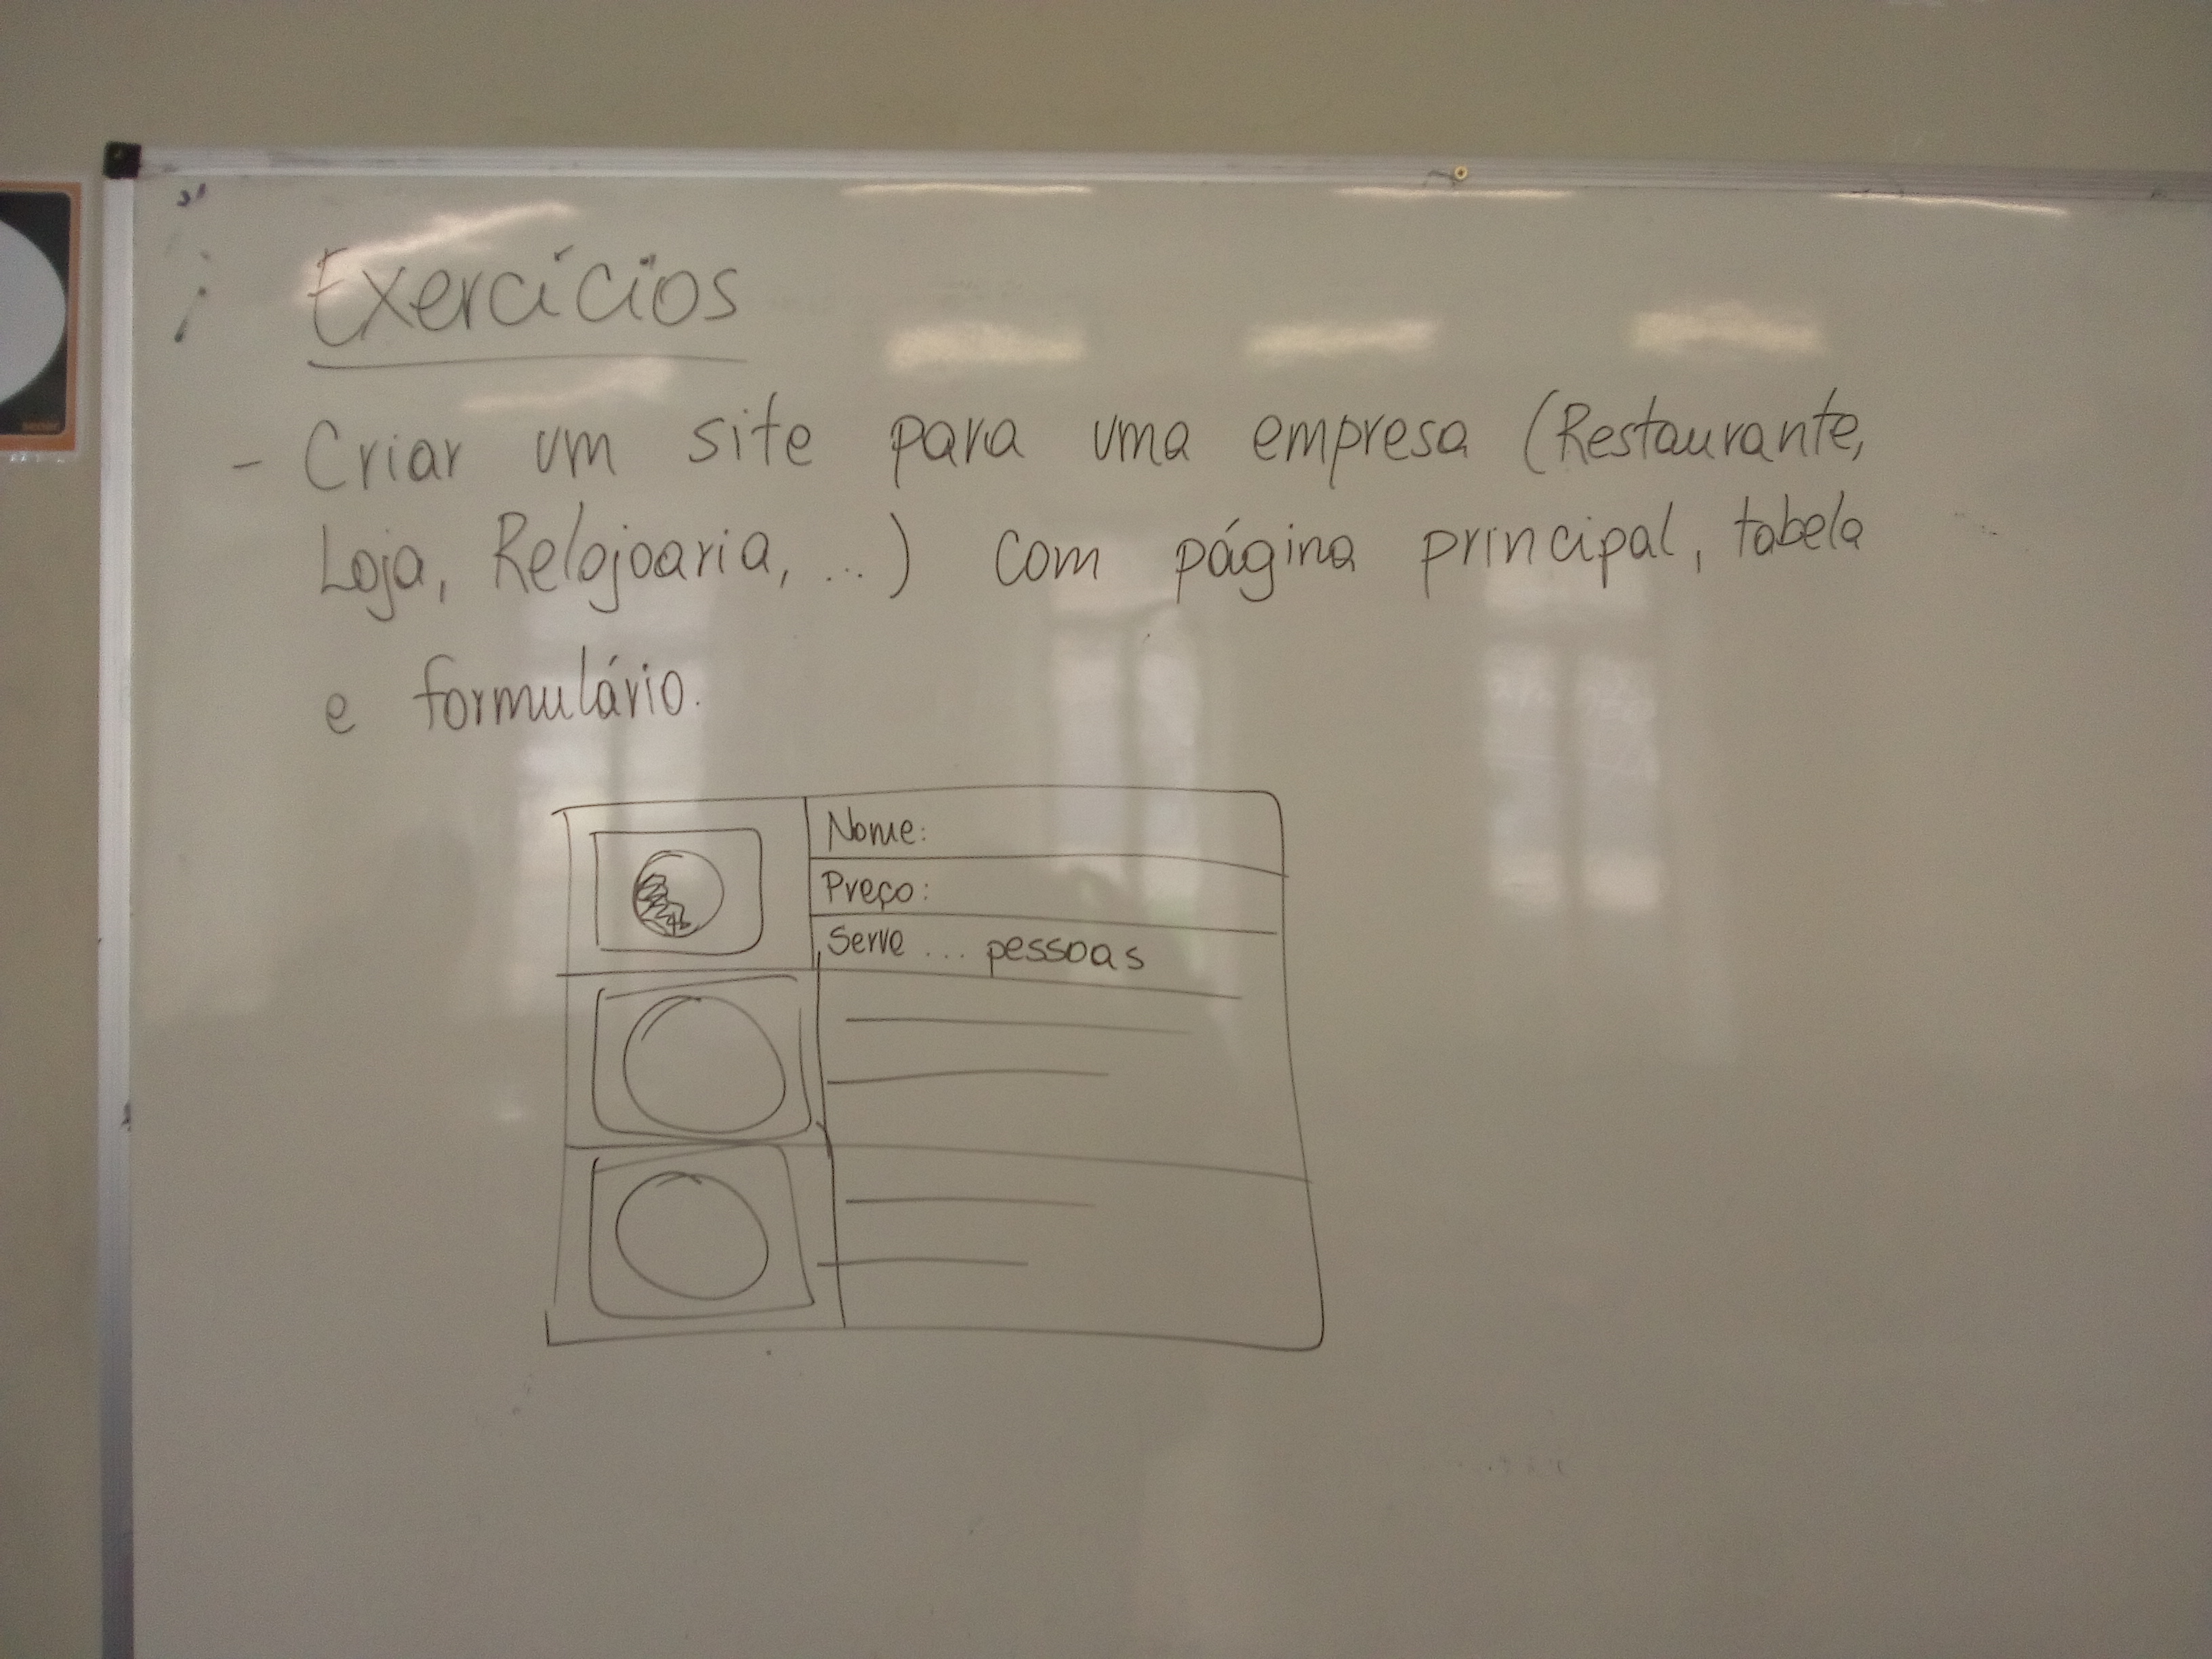 Exercícios
- Criar um site para uma empresa (Restaurante,
Loja, Relojoaria, ...) com página principal, tabela
e formulário.
Nome:
Preço:
Serve ... pessoas